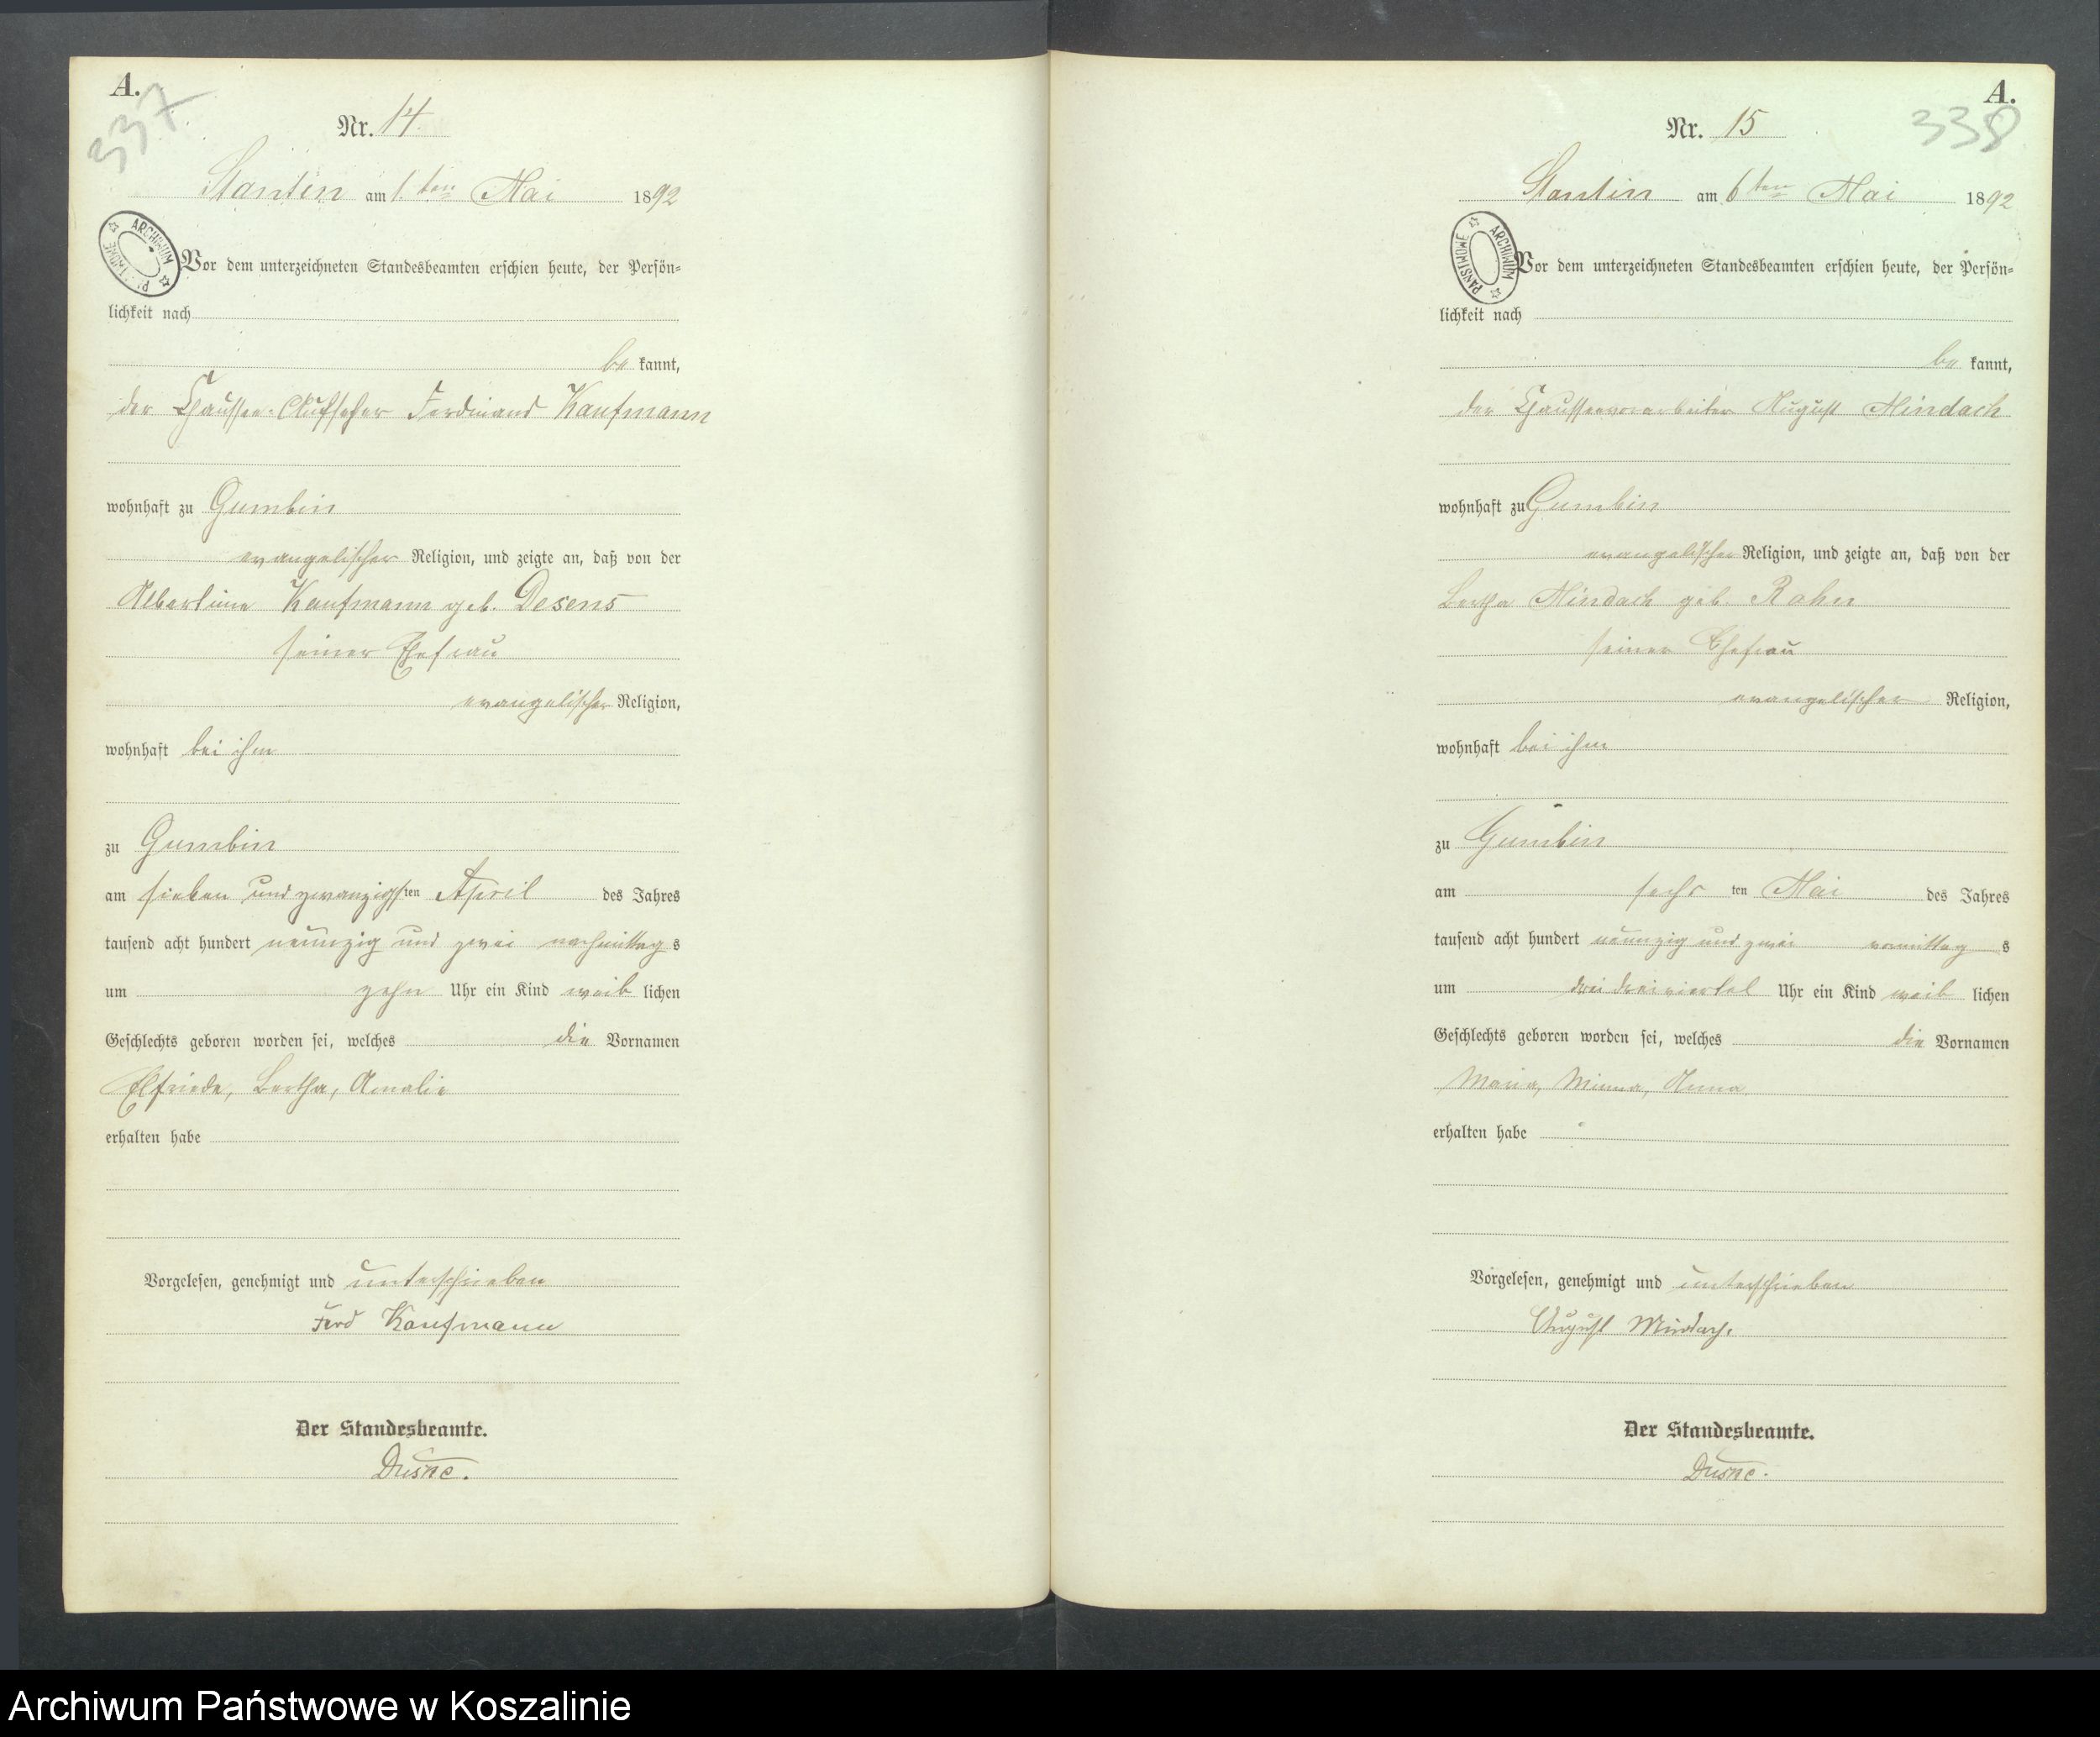 A.
337
Nr. 14
Stantin am 1. ten Mai 1892
ARCHIWUM
Vor dem unterzeichneten Standesbeamten erschien heute, der Persön=
lichkeit nach
be kannt,
der Chaussee-Aufseher Ferdinand Kaufmann
wohnhaft zu Gumbin
evangelischer Religion, und zeigte an, daß von der
Albertine Kaufmann geb. Desens
seiner Ehefrau
evangelischer Religion,
wohnhaft bei ihm
zu Gumbin
am sieben und zwanzigsten April des Jahres
tausend acht hundert neunzig und zwei nachmittag s
um zehn Uhr ein Kind weib lichen
Geschlechts geboren worden sei, welches die Vornamen
Elfriede, Bertha, Amalie
erhalten habe
Vorgelesen, genehmigt und unterschrieben
Ferd Kaufmann
Der Standesbeamte.
A.
338
Nr. 15
Stantin am 6 ten Mai 1892
ARCHIWUM PAŃSTWOWE
Vor dem unterzeichneten Standesbeamten erschien heute, der Persön=
lichkeit nach
be kannt,
der Chausseevorarbeiter August Mindach
wohnhaft zu Gumbin
evangelischer Religion, und zeigte an, daß von der
Bertha Mindach geb. Rahn
seiner Ehefrau
evangelischer Religion,
wohnhaft bei ihm
zu Gumbin
am sechs ten Mai des Jahres
tausend acht hundert neunzig und zwei vormittag s
um drei dreiviertel Uhr ein Kind weib lichen
Geschlechts geboren worden sei, welches die Vornamen
Maria, Minna, Anna
erhalten habe
Vorgelesen, genehmigt und unterschrieben
August Mindach.
Der Standesbeamte.
Archiwum Państwowe w Koszalinie